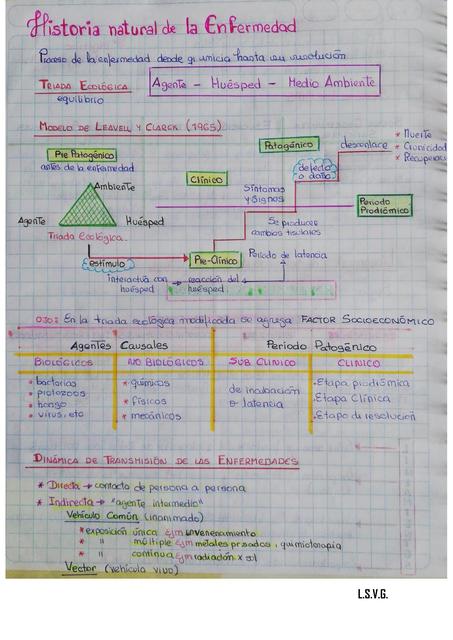 Historia natural de la Enfermedad
Proceso de la enfermedad desde q' inicia hasta su resolución
TRIADA ECOLÓGICA
equilibrio
Agente - Huésped - Medio Ambiente
MODELO DE LEAVELL Y CLARCK (1965)
Pre Patogénico
antes de la enfermedad
Clínico
Patogénico
desenlace
* Muerte
* Cronicidad
* Recuperac
defecto
o daño
Ambiente
Agente
Huésped
Triada Ecológica
Síntomas
y Signos
Periodo
Prodrómico
Se producen
cambios tisulares
estímulo
Pre-Clínico
Periodo de latencia
interactua con
huésped
reacción del
huésped
OJO: En la triada ecológica modificada se agrega FACTOR SOCIOECONÓMICO
Agentes Causales
Periodo Patogénico
BIOLÓGICOS
NO BIOLÓGICOS
SUB CLINICO
CLINICO
* bacterias
* protozoos
* hongo
* virus, etc
* químicos
* físicos
* mecánicos
de incubación
o latencia
.Etapa prodrómica
.Etapa Clínica
.Etapa de resolución
DINÁMICA DE TRANSMISIÓN DE LAS ENFERMEDADES
* Directa → contacto de persona a persona
* Indirecta → "agente intermedio"
Vehículo Común (inanimado)
* exposición única Ejm envenenamiento
* " múltiple Ejm metales pesados, quimioterapia
* " continua Ejm radiación x sol
Vector (vehículo vivo)
L.S.V.G.